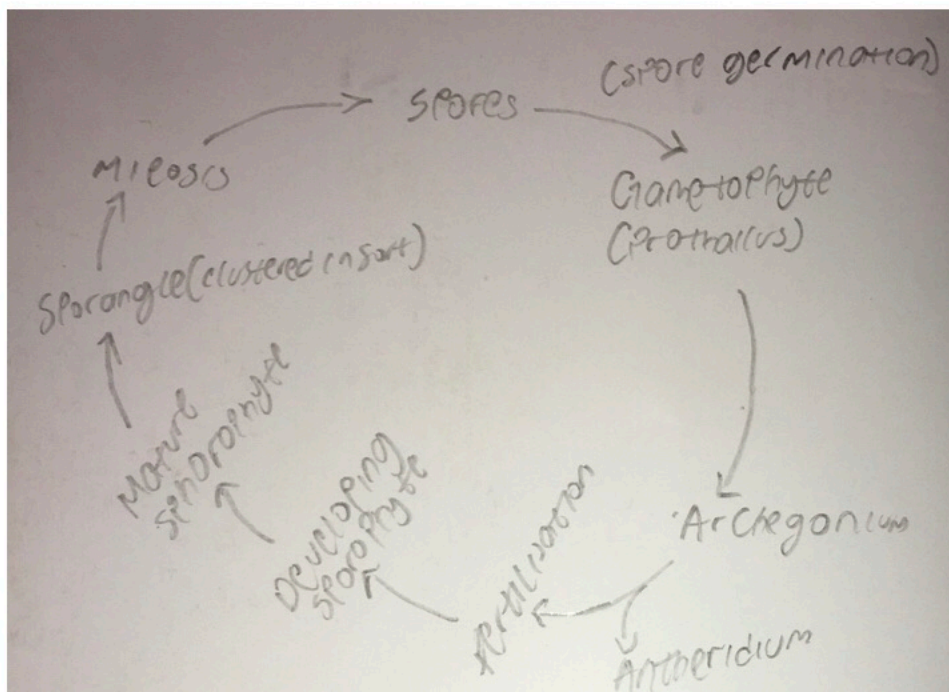 Spores
(spore germination)
Gametophyte
(Prothallus)
Archegonium
Antheridium
fertilisation
Developing
sporophyte
Mature
sphorophyte
Sporangie (clustered in sori)
Mieosis